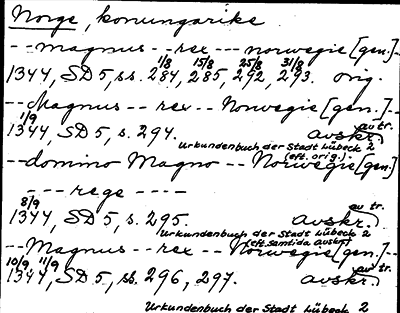 Norge, konungarike
--magnus--rex---norwegie[gen.]--
1/8 15/8 25/8 31/8
1344, SD 5, ss. 284, 285, 292, 293. orig.
--Magnus--rex--Norwegie[gen.]--
1/9 av tr.
1344, SD 5, s. 294. avskr.
Urkundenbuch der Stadt Lübeck 2
(eft. orig.)
--domino Magno--Norwegie[gen]
---rege----
8/9 av tr.
1344, SD 5, s. 295. avskr.
Urkundenbuch der Stadt Lübeck 2
(eft. samtida avskr.)
--Magnus--rex--Norwegie[gen.]--
10/9 11/9 av tr.
1344, SD 5, ss. 296, 297. avskr.
Urkundenbuch der Stadt Lübeck 2